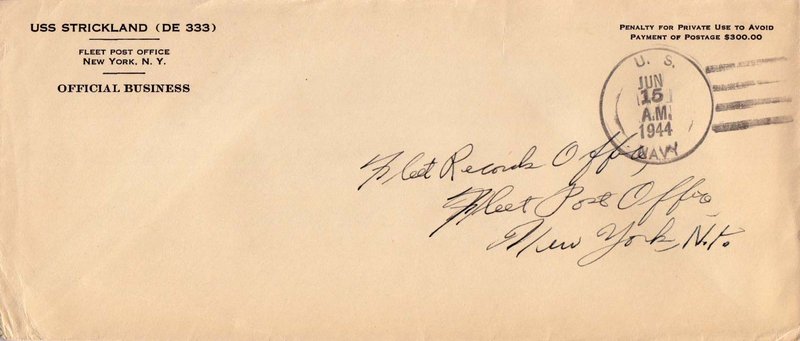 USS STRICKLAND (DE 333)
FLEET POST OFFICE
NEW YORK, N. Y.
OFFICIAL BUSINESS
PENALTY FOR PRIVATE USE TO AVOID
PAYMENT OF POSTAGE $300.00
U. S.
JUN
15
A.M.
1944
NAVY
Fleet Records Office,
Fleet Post Office
New York, N.Y.